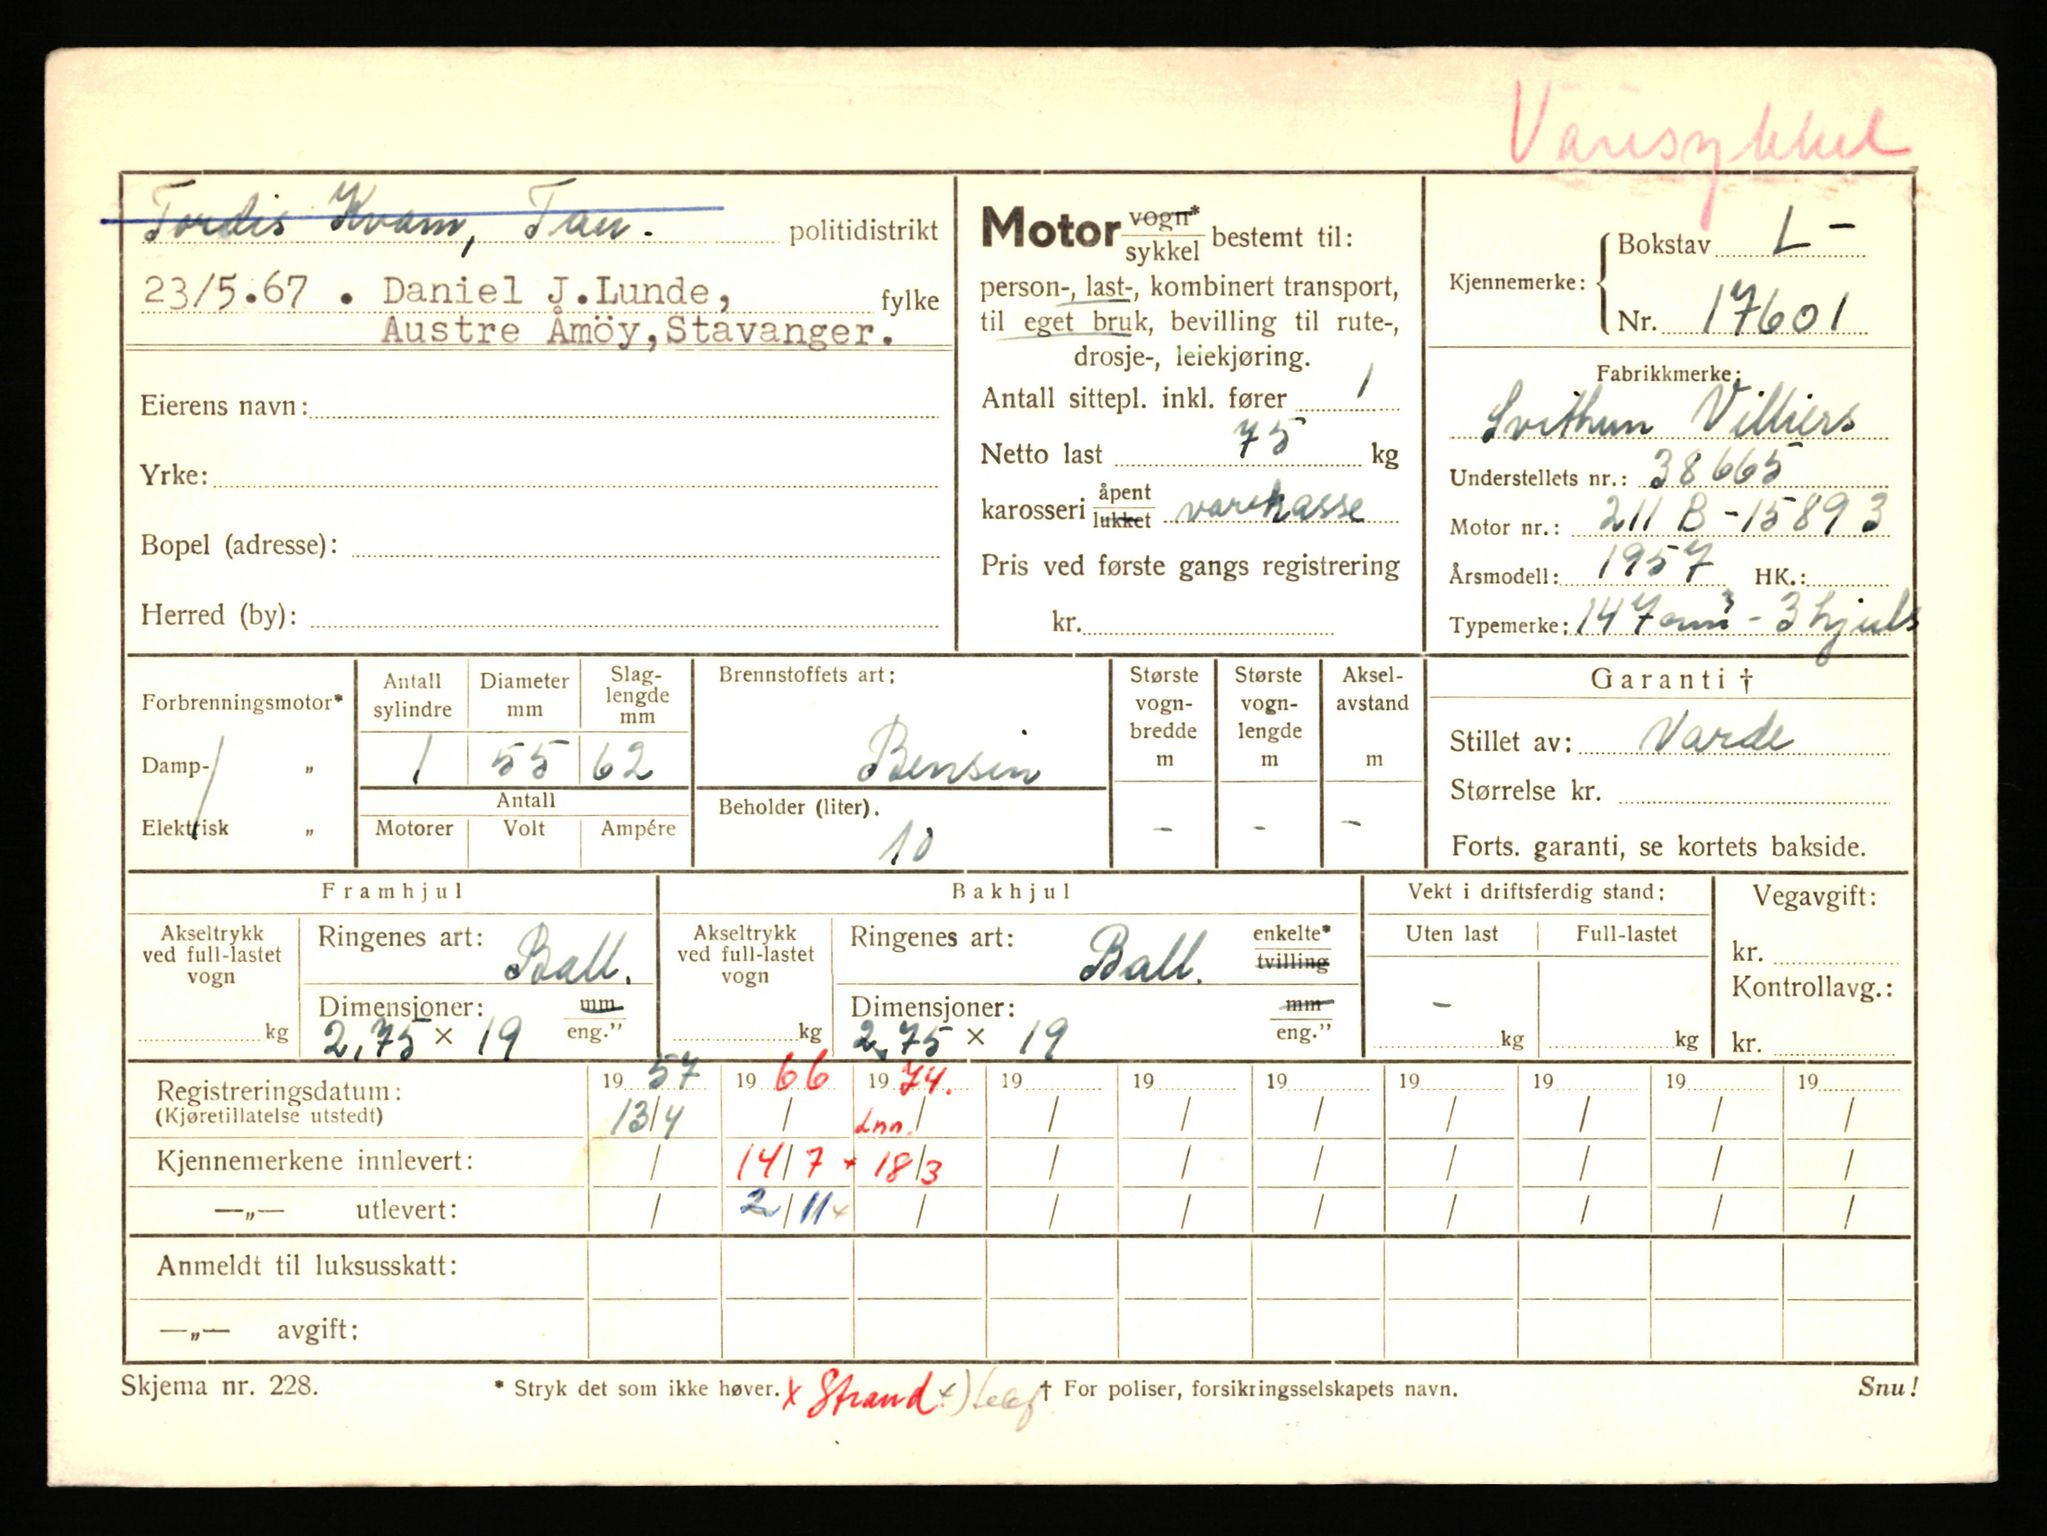 Varesykkel
Tordis Kvam, Tau. politidistrikt
23/5.67 . Daniel J.Lunde, fylke
Austre Åmöy, Stavanger.
Eierens navn:
Yrke:
Bopel (adresse):
Herred (by):
Motor vogn* sykkel bestemt til:
person-, last-, kombinert transport,
til eget bruk, bevilling til rute-,
drosje-, leiekjøring.
Antall sittepl. inkl. fører 1
Netto last 75 kg
karosseri åpent lukket varekasse
Pris ved første gangs registrering
kr.
Kjennemerke: Bokstav L-
Nr. 17601
Fabrikkmerke:
Svithun Villiers
Understellets nr.: 38665
Motor nr.: 211 B-15893
Årsmodell: 1957 HK.:
Typemerke: 147 cm³ - 3 hjuls
Forbrenningsmotor*
Damp- „
Elektrisk „
Antall sylindre
Diameter mm
Slag-lengde mm
1 55 62
Antall
Motorer Volt Ampére
Brennstoffets art:
Bensin
Beholder (liter).
10
Største vogn-bredde m
Største vogn-lengde m
Aksel-avstand m
- - -
Garanti †
Stillet av: Varde
Størrelse kr.
Forts. garanti, se kortets bakside.
Framhjul
Akseltrykk ved full-lastet vogn
kg
Ringenes art: Ball.
Dimensjoner: mm
2,75 × 19 eng.”
Bakhjul
Akseltrykk ved full-lastet vogn
kg
Ringenes art: Ball. enkelte* tvilling
Dimensjoner: mm
2,75 × 19 eng.”
Vekt i driftsferdig stand:
Uten last Full-lastet
-
kg kg
Vegavgift:
kr.
Kontrollavg.:
kr.
Registreringsdatum: 19 57 19 66 19 74. 19 19 19 19 19 19 19
(Kjøretillatelse utstedt) 13/4 / Inn. / / / / / / / /
Kjennemerkene innlevert: / 14/7 x 18/3 / / / / / / /
—„— utlevert: / 2/11 x / / / / / / / /
Anmeldt til luksusskatt:
—„— avgift:
Skjema nr. 228. * Stryk det som ikke høver. x Strand x) † For poliser, forsikringsselskapets navn. Snu!